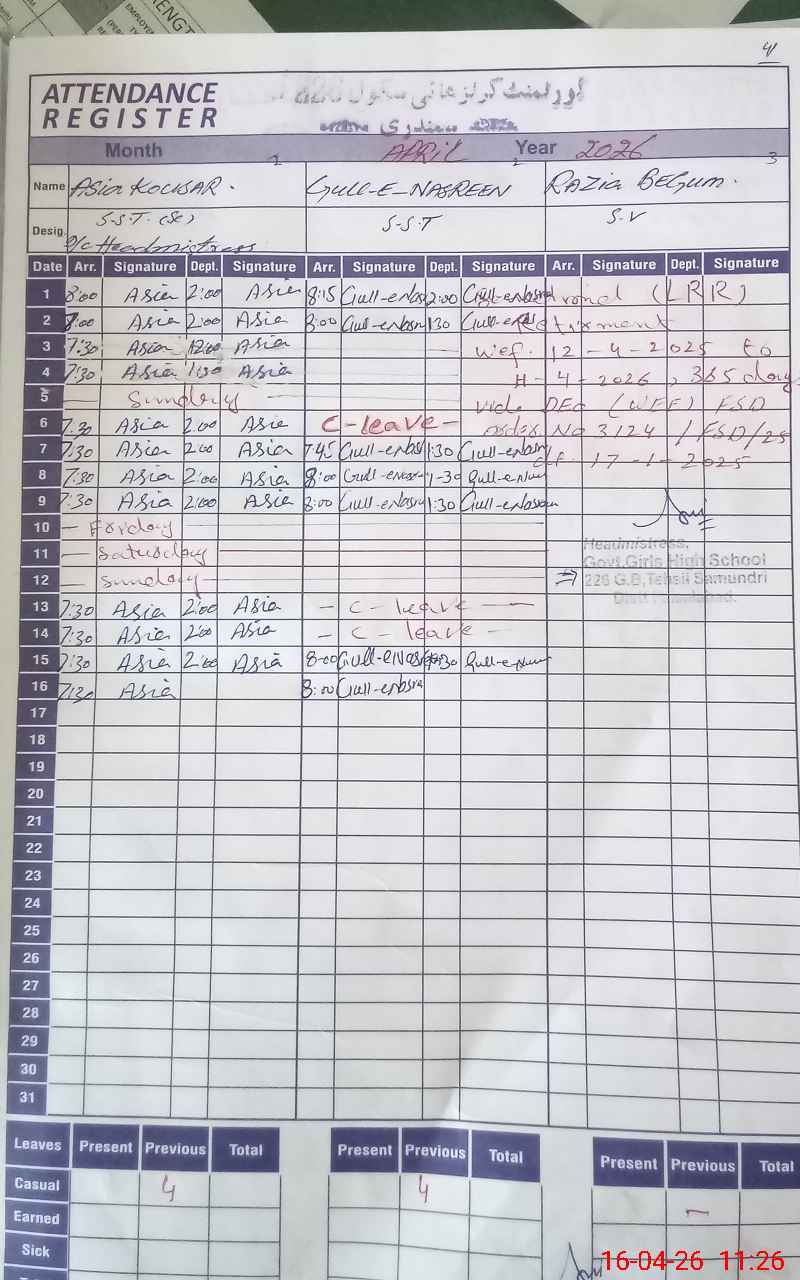 ENGTH
41
ATTENDANCE
REGISTER
گورنمنٹ گرلز ہائی سکول
سمندری
Month APRIL Year 2026
1 2 3
Name ASIA KOUSAR. GULL-E-NASREEN RAZIA BEGUM.
Desig. S.S.T (Sc) S-S-T S.V
O/c Headmistress
Date Arr. Signature Dept. Signature Arr. Signature Dept. Signature Arr. Signature Dept. Signature
1 8:00 Asia 2:00 Asia 8:15 Gull-eNasn 2:00 Gull-eNasn (LRR)
2 8:00 Asia 2:00 Asia 8:00 Gull-eNasn 1:30 Gull-e Retirment
3 7:30 Asia 12:00 Asia w.e.f. 12-4-2025 to
4 7:30 Asia 1:30 Asia 11-4-2026, 365 days
5 — Sunday — vide DEO (WEE) FSD
6 7:30 Asia 2:00 Asia C-leave- order No 3124 / FSD/25
7 7:30 Asia 2:00 Asia 7:45 Gull-eNasn 1:30 Gull-eNasn dt. 17-1-2025
8 7:30 Asia 2:00 Asia 8:00 Gull-eNasn 1-30 Gull-eNasn
9 7:30 Asia 2:00 Asia 8:00 Gull-eNasn 1:30 Gull-eNasn
10 — Forday
11 — Saturday
12 — Sunday —
Headmistress,
Govt.Girls High School
226 G.B,Tehsil Samundri
Distt Faisalabad.
13 7:30 Asia 2:00 Asia - C - leave -
14 7:30 Asia 2:00 Asia - C - leave -
15 7:30 Asia 2:00 Asia 8-00 Gull-eNasn 1:30 Gull-eNasn
16 7:30 Asia 8:00 Gull-eNasn
17
18
19
20
21
22
23
24
25
26
27
28
29
30
31
Leaves Present Previous Total Present Previous Total Present Previous Total
Casual 4 4 -
Earned
Sick
16-04-26 11:26